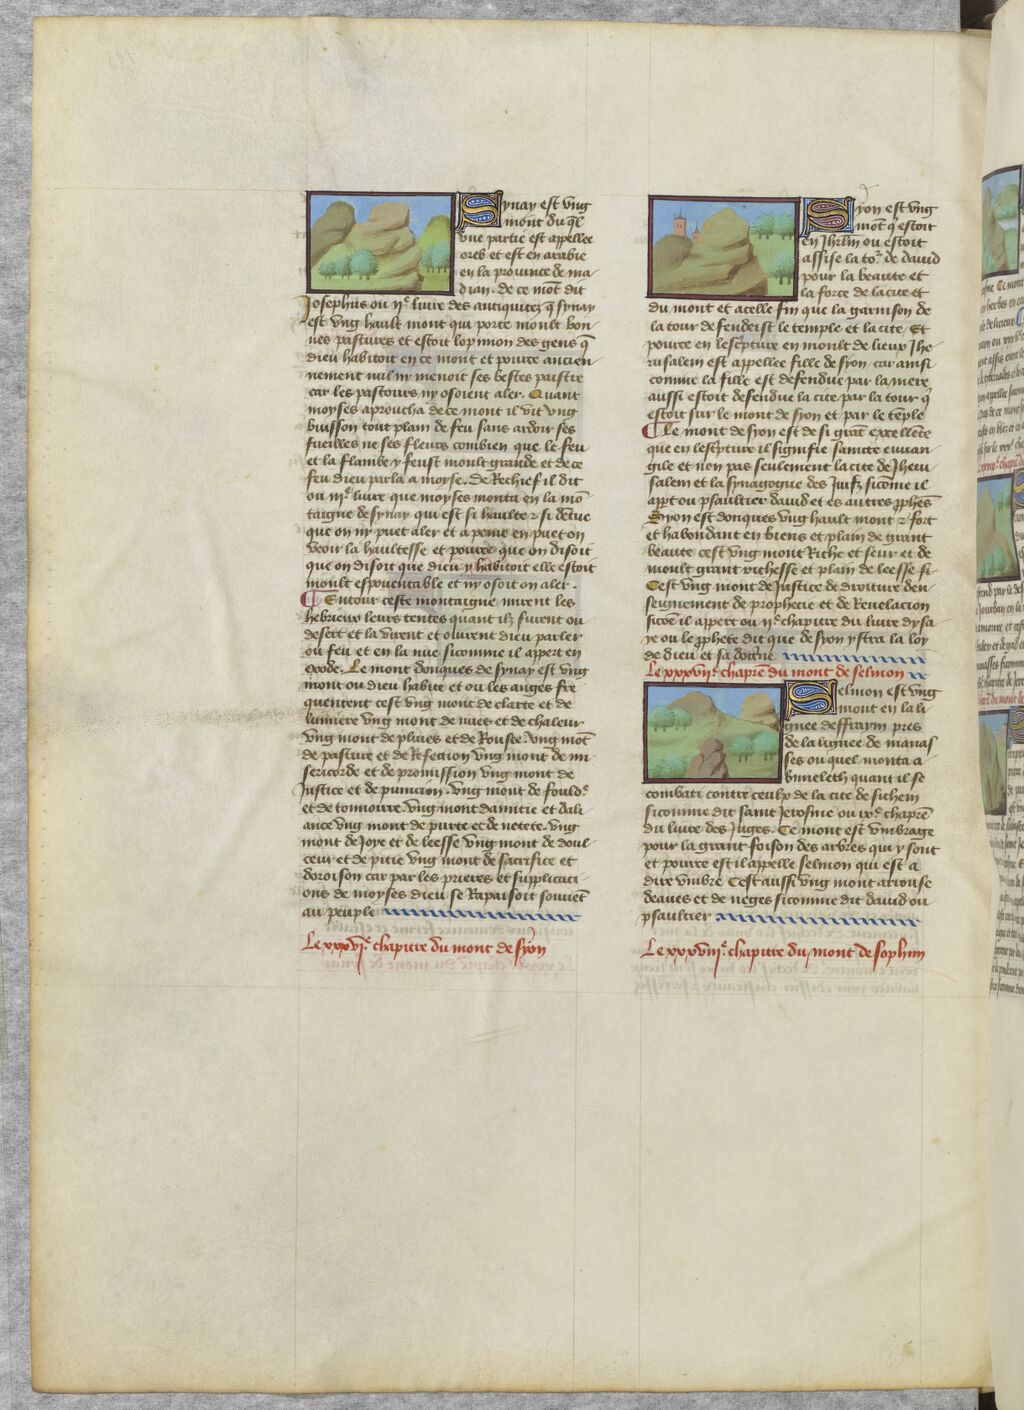 Synay est vng
mont du ql̄
vne partie est appellee
oreb et est en arabie
en la prouince de ma
dian. de ce mōt dit
Josephus ou ijᵉ liure des antiquitez q̄ synay
est vng hault mont qui porte moult bon
nes pastures et estoit lopinion des gens q̄
dieu habitoit en ce mont et pource ancien
nement nul ny menoit ses bestes paistre
car les pastours ny osoient aler. Quant
moyses aproucha de ce mont il vit vng
buisson tout plain de feu sans ardoir ses
fueilles ne ses fleurs combien que le feu
et la flambe y feust moult grande et de ce
feu dieu parla a moyse. De Rechief il dit
ou iijᵉ liure que moyses monta en la mō
taigne de synay qui est si haulte et si
que on ny puet aler et a peine en puet on
veoir la haultesse et pource que on disoit
que on disoit que dieu y habitoit elle estoit
moult espouentable et ny osoit on aler.
¶ Entour ceste montaigne mirent les
hebrieux leurs tentes quant ilz furent ou
desert et la virent et oïrent dieu parler
ou feu et en la nue sicomme il appert en
exode. Le mont donques de synay est vng
mont ou dieu habite et ou les anges fre
quentent cest vng mont de clarte et de
lumiere vng mont de nuet et de chaleur
vng mont de pluies et de Rousee. vng mōt
de pasture et de Refection vng mont de mi
sericorde et de promission vng mont de
Justice et de punicion. vng mont de fouldᵉ
et de tonnoirre. vng mont damitie et dali
ance vng mont de purte et de netete. vng
mont de Joye et de leesse vng mont de doul
ceur et de pitie vng mont de sacrifice et
doroison car par les prieres et supplicaci
ons de moyses dieu se Rapaisoit souuēt
au peuple
Le xxxviᵉ. chapitre du mont de syon
Syon est vng
mōt q̄ estoit
en Jhrlm̄ ou estoit
assise la toᵣ de dauid
pour la beaute et
la force de la cite et
du mont et a celle fin que la garnison de
la tour defendeist le temple et la cite. Et
pource en lescripture en moult de lieux Jhe
rusalem est appellee fille de syon car ainsi
comme la fille est defendue par la mere
aussi estoit defendue la cite par la tour q̄
estoit sur le mont de syon et par le tēple
¶ Le mont de syon est de si grāt excellēce
que en lescripture il signifie saincte euuan
gile et non pas seulement la cite de Jheru
salem et la synagogue des Juifz sicōme il
ap̄t ou psaultier dauid et es autres ꝓphēs
Syon est donques vng hault mont et fort
et habondant en biens et plain de grant
beaute cest vng mont Riche et seur et de
moult grant richesse et plain de leesse si
Cest vng mont de Justice de droiture den
seignement de prophecie et de Reuelacion
sicōe il appert ou ijᵉ chapitre du liure dysa
ye ou le ꝓphete dit que de syon ystra la loy
de dieu et sa doctrīe
Le xxxviiᵉ. chaprē du mont de selmon
Selmon est vng
mont en la li
gnee deffraym pres
de la lignee de manas
ses ou quel monta a
bimeleth quant il se
combati contre ceulx de la cite de sichem
sicomme dit saint Jerosme ou ixᵉ chaprē
du liure des Juges. Ce mont est vmbrage
pour la grant foison des arbres qui y sont
et pource est il appelle selmon qui est a
dire vmbre Cest aussi vng mont arrouse
deaues et de neges sicomme dit dauid ou
psaultier
Le xxxviijᵉ. chapitre du mont de sophim